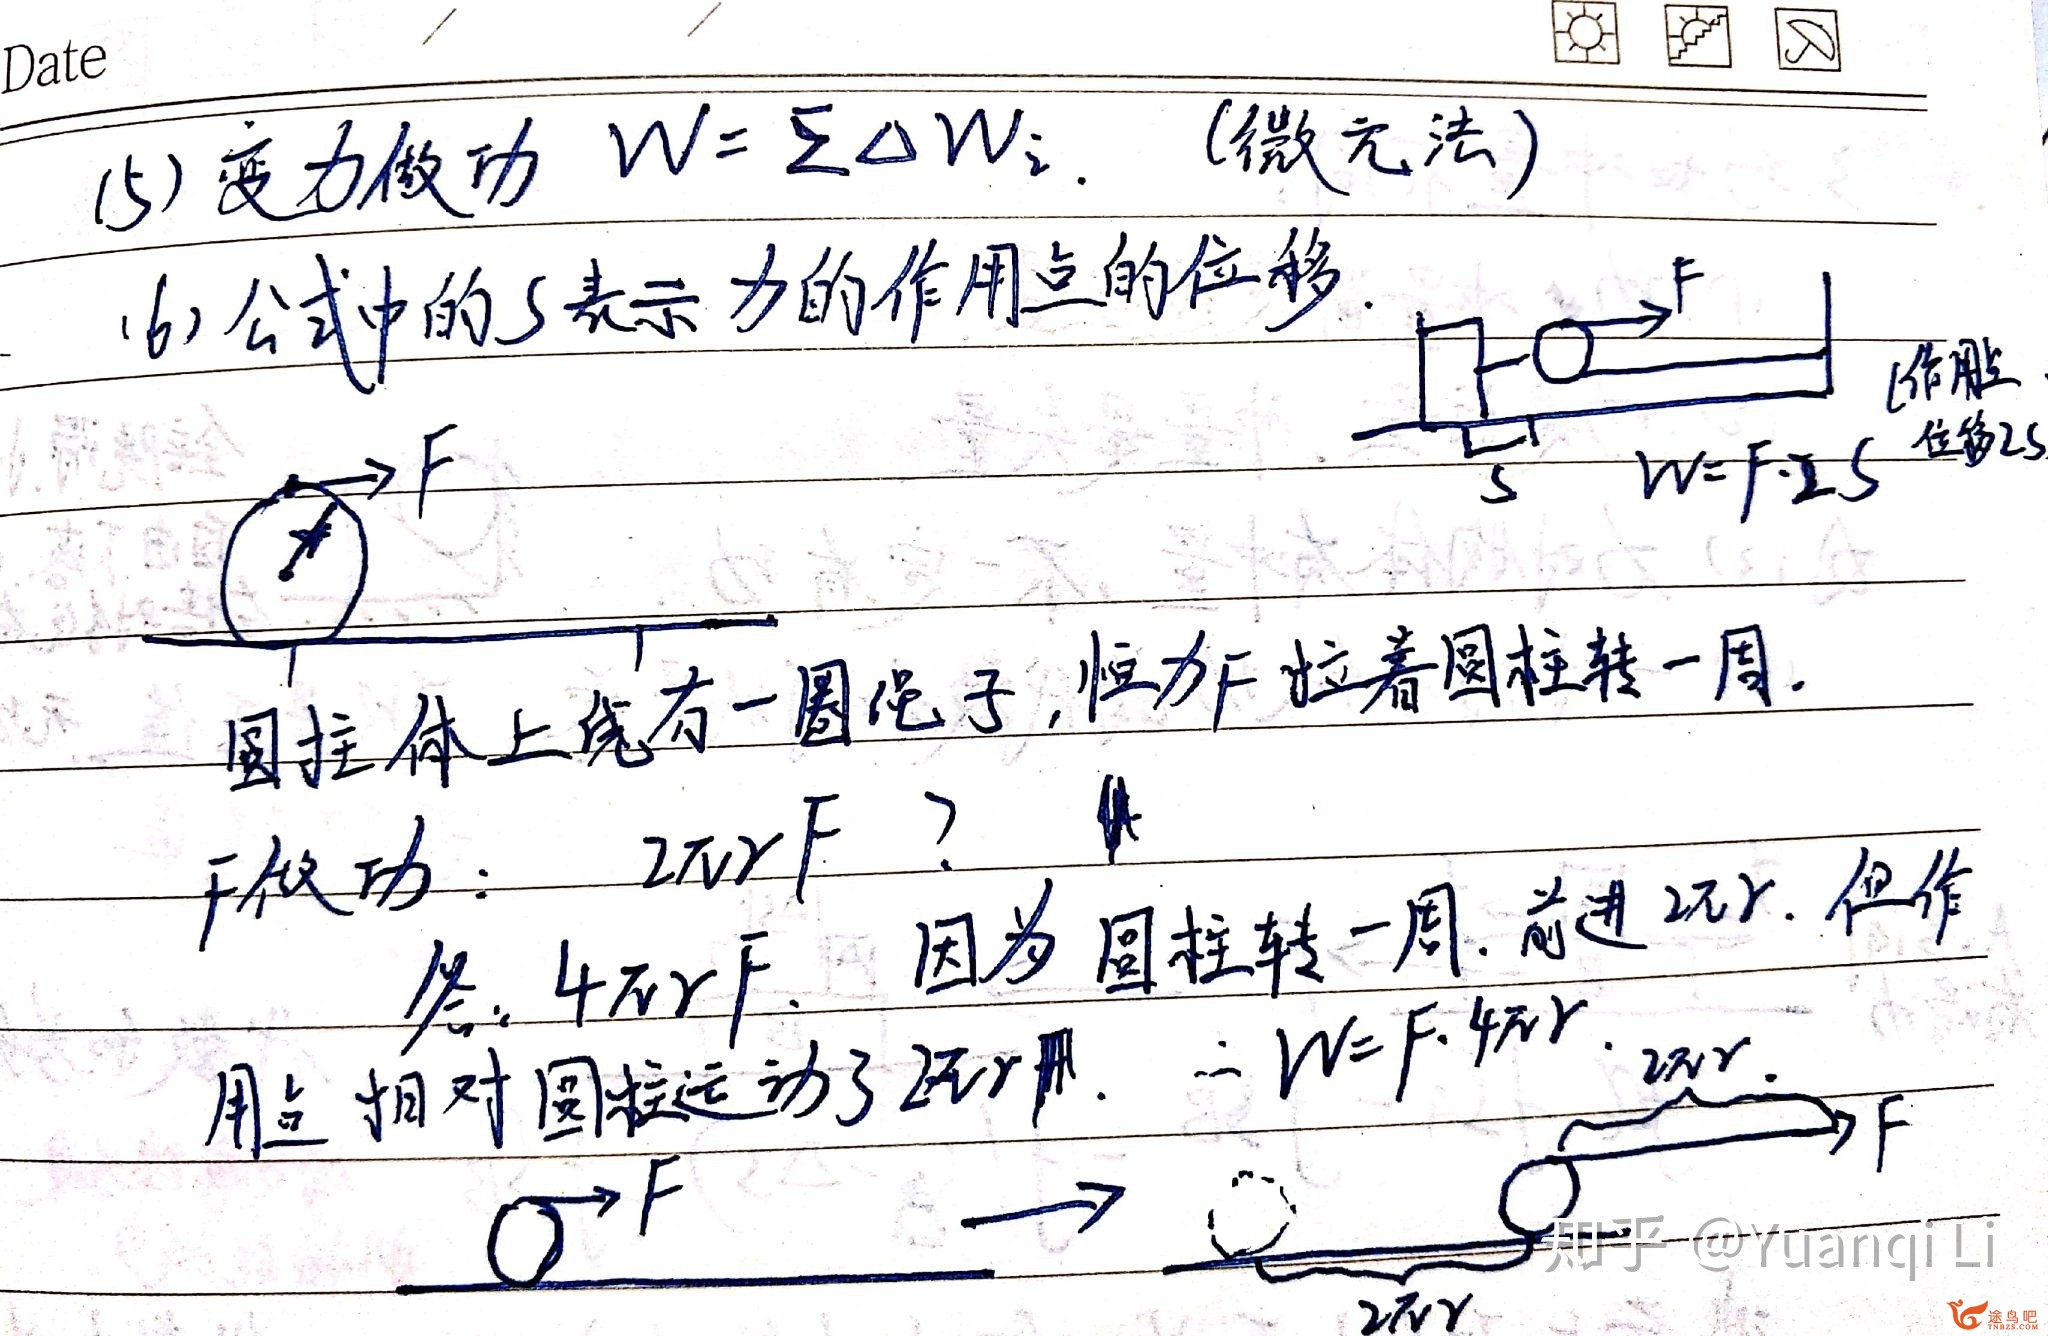 Date
(5) 变力做功 W=ΣΔWi. (微元法)
(6) 公式中的S表示力的作用点的位移.
F
(作用点
位移2S
S
W=F·2S
F
r
圆柱体上绕有一圈绳子,恒力F拉着圆柱转一周.
F做功: 2πrF ?
答: 4πrF. 因为圆柱转一周.前进2πr.但作
用点相对圆柱运动了2πr. ∴W=F·4πr.
2πr.
F
F
2πr
知乎 @Yuanqi Li
途鸟吧
TNBZS.COM